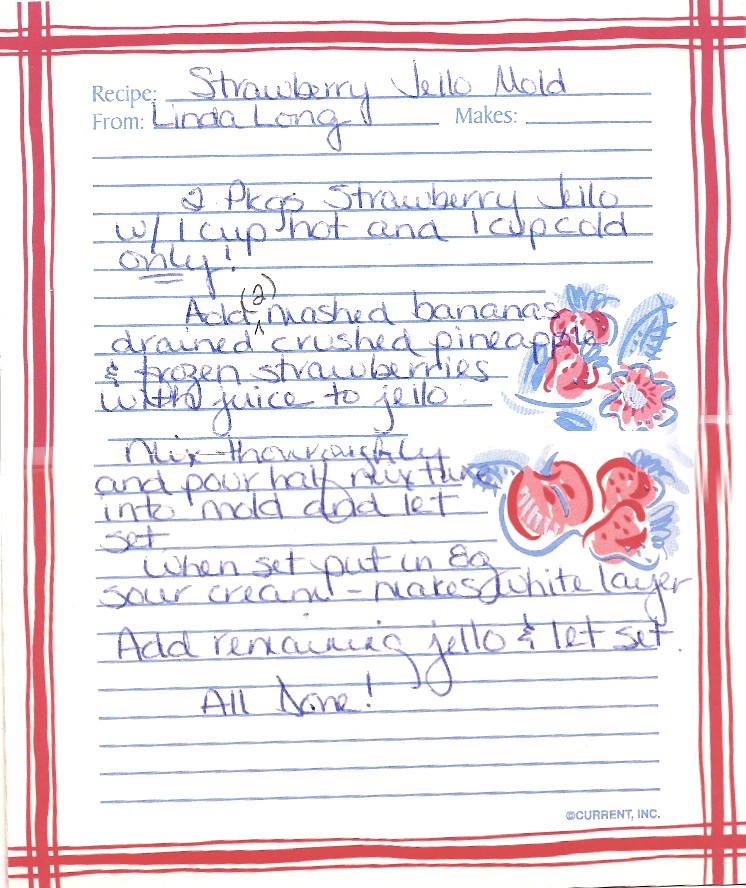 Recipe: Strawberry Jello Mold
From: Linda Long Makes:
2 Pkgs Strawberry Jello
w/ 1 cup hot and 1 cup cold
only!
Add (2) mashed bananas
drained crushed pineapple
& frozen strawberries
with juice to jello.
Mix thouroughly
and pour half mixture
into mold and let
set.
When set put in 8oz
sour cream - makes white layer
Add remaining jello & let set.
All Done!
©CURRENT, INC.